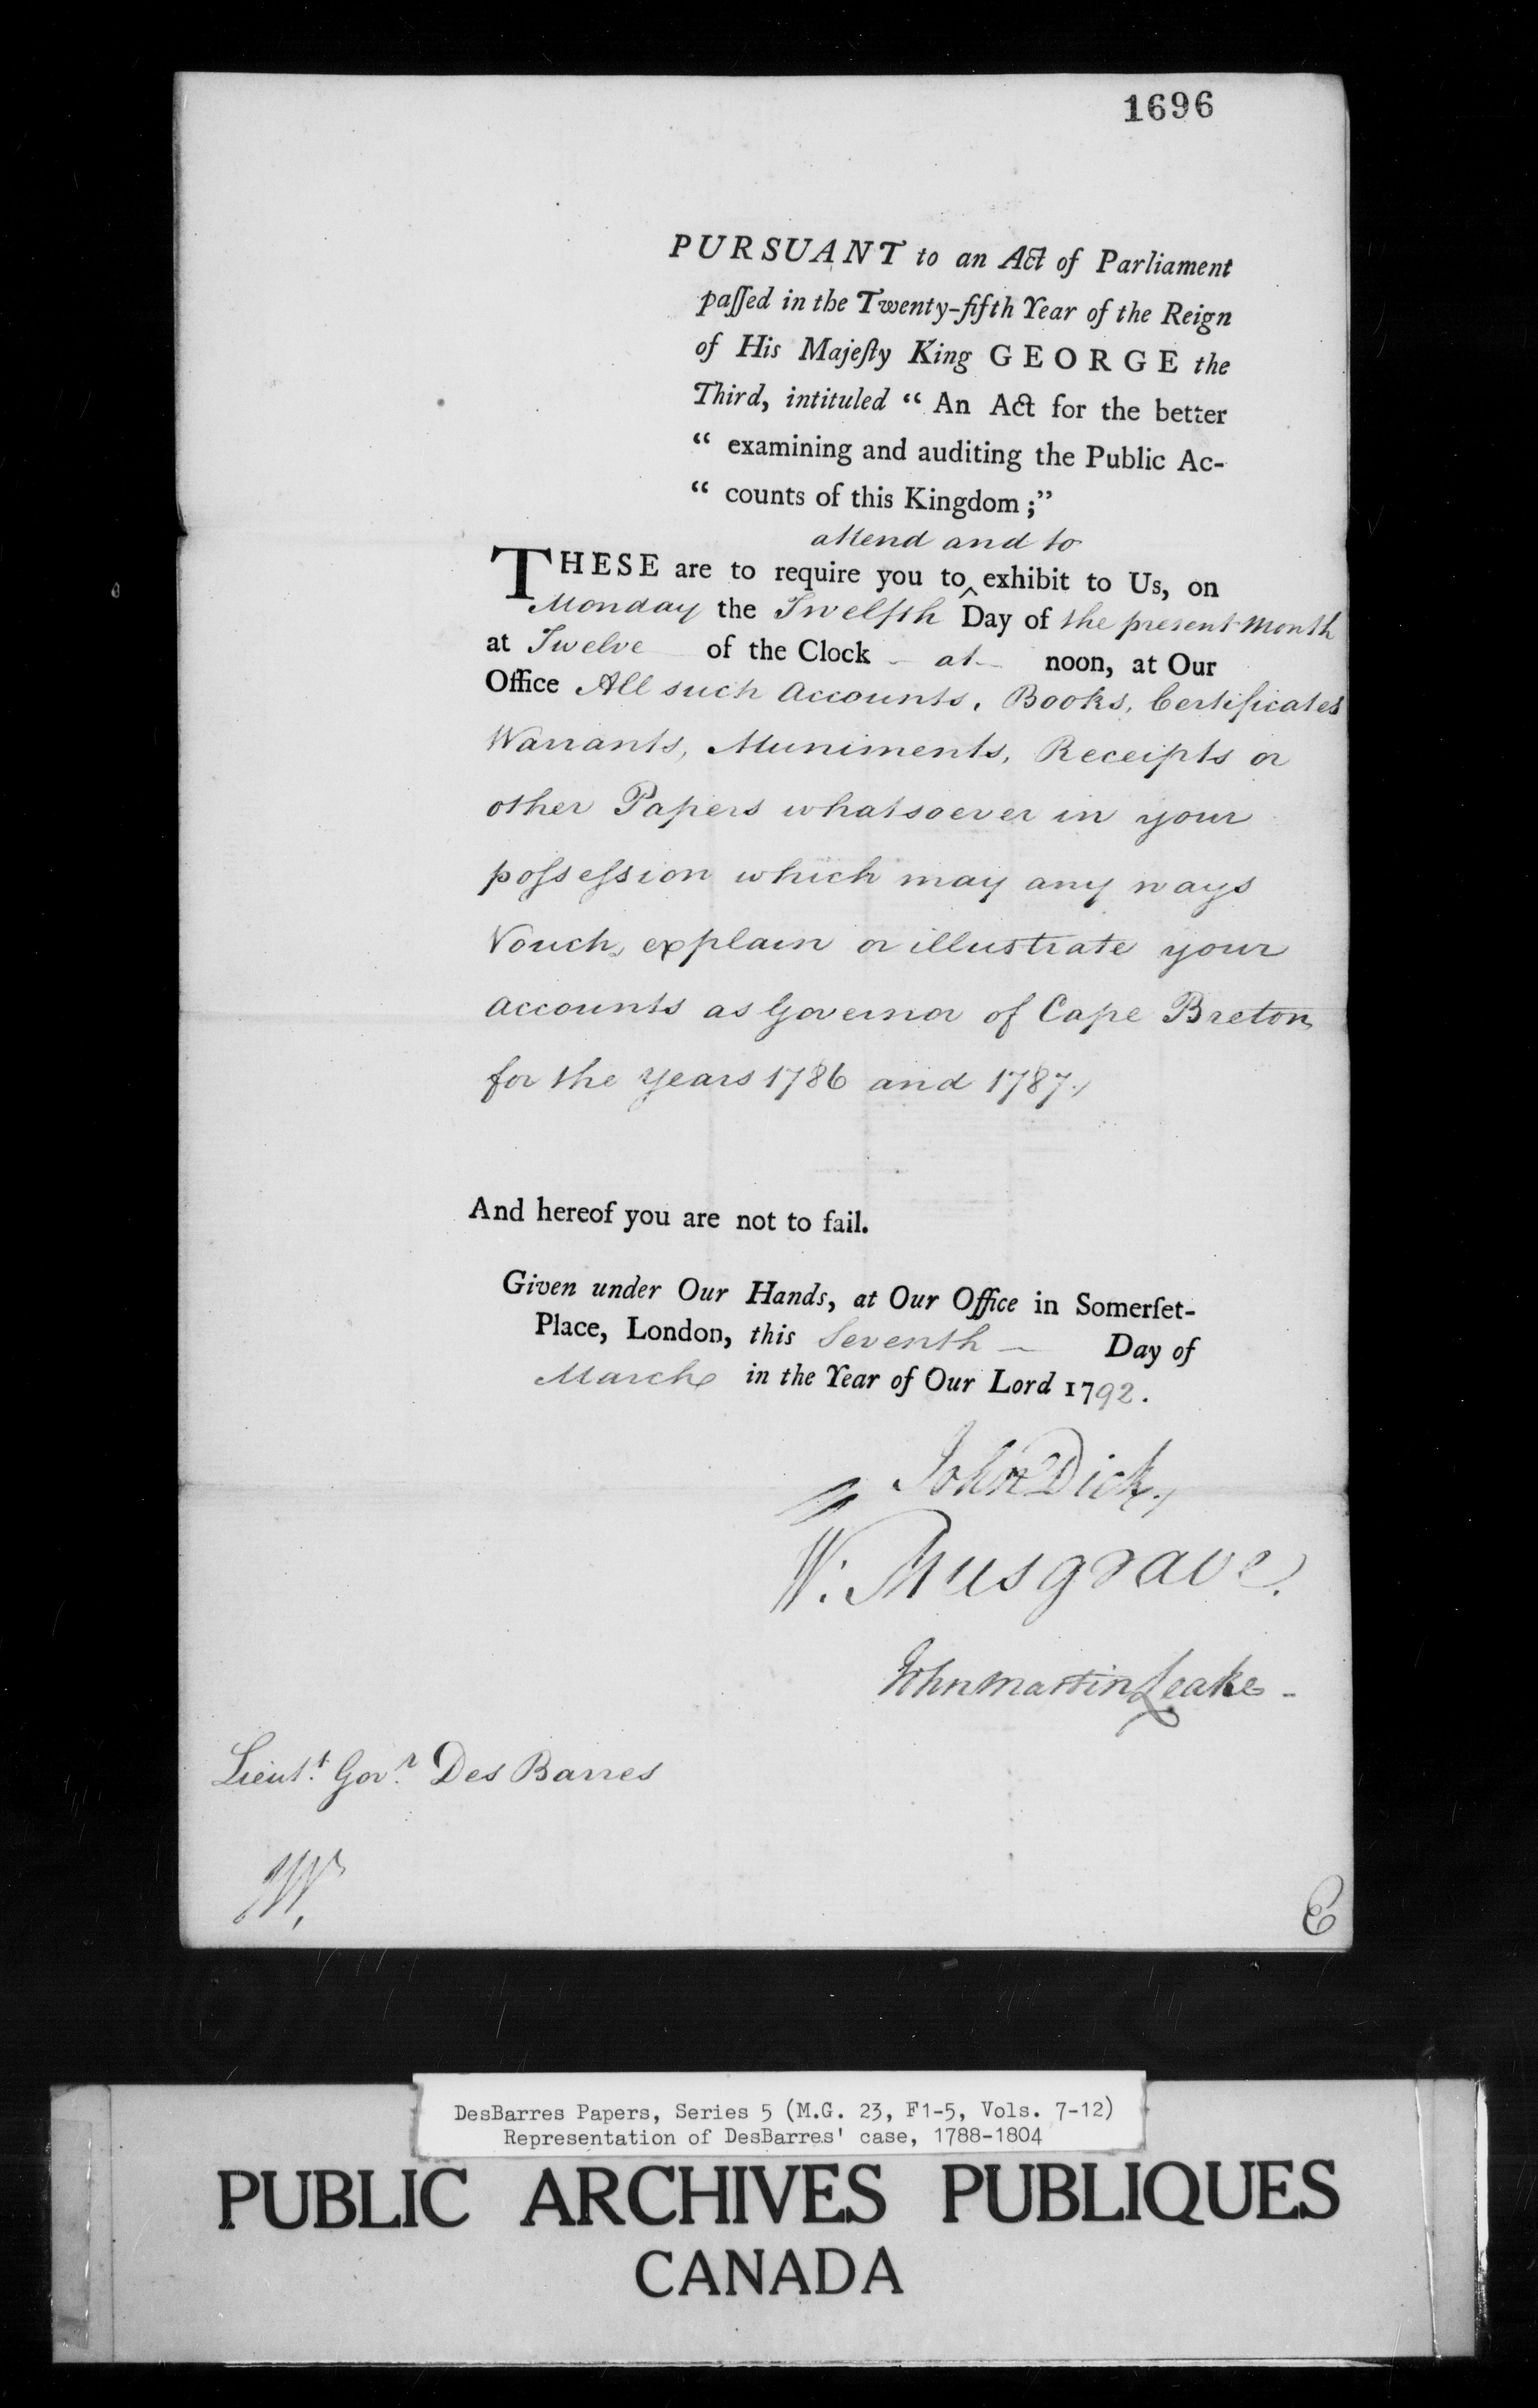 1696
PURSUANT to an Act of Parliament
paſſed in the Twenty-fifth Year of the Reign
of His Majeſty King GEORGE the
Third, intituled “ An Act for the better
“ examining and auditing the Public Ac-
“ counts of this Kingdom ;”
attend and to
THESE are to require you to ‸ exhibit to Us, on
Monday the Twelfth Day of the present Month
at Twelve of the Clock - at - noon, at Our
Office All such Accounts, Books, Certificates
Warrants, Muniments, Receipts or
other Papers whatsoever in your
poſseſsion which may any ways
Vouch, explain or illustrate your
accounts as Governor of Cape Breton
for the years 1786 and 1787.
And hereof you are not to fail.
Given under Our Hands, at Our Office in Somerſet-
Place, London, this Seventh — Day of
March in the Year of Our Lord 1792.
John Dick
W: Musgrave.
John Martin Leake -
Lieut.t Gov.r Des Barres
W.
E
DesBarres Papers, Series 5 (M.G. 23, F1-5, Vols. 7-12)
Representation of DesBarres' case, 1788-1804
PUBLIC ARCHIVES PUBLIQUES
CANADA